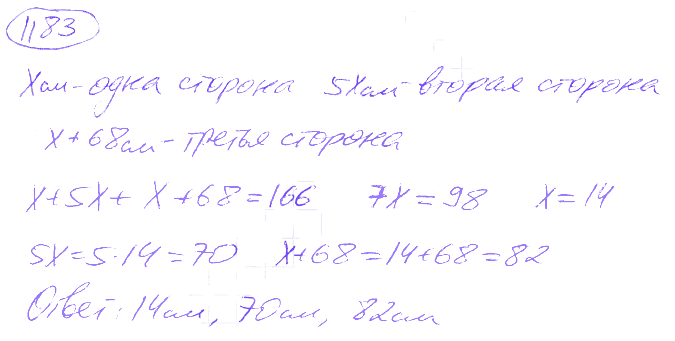 1183
Xсм - одна сторона 5Xсм - вторая сторона
X+68см - третья сторона
X+5X+X+68=166 7X=98 X=14
5X=5·14=70 X+68=14+68=82
Ответ: 14см, 70см, 82см